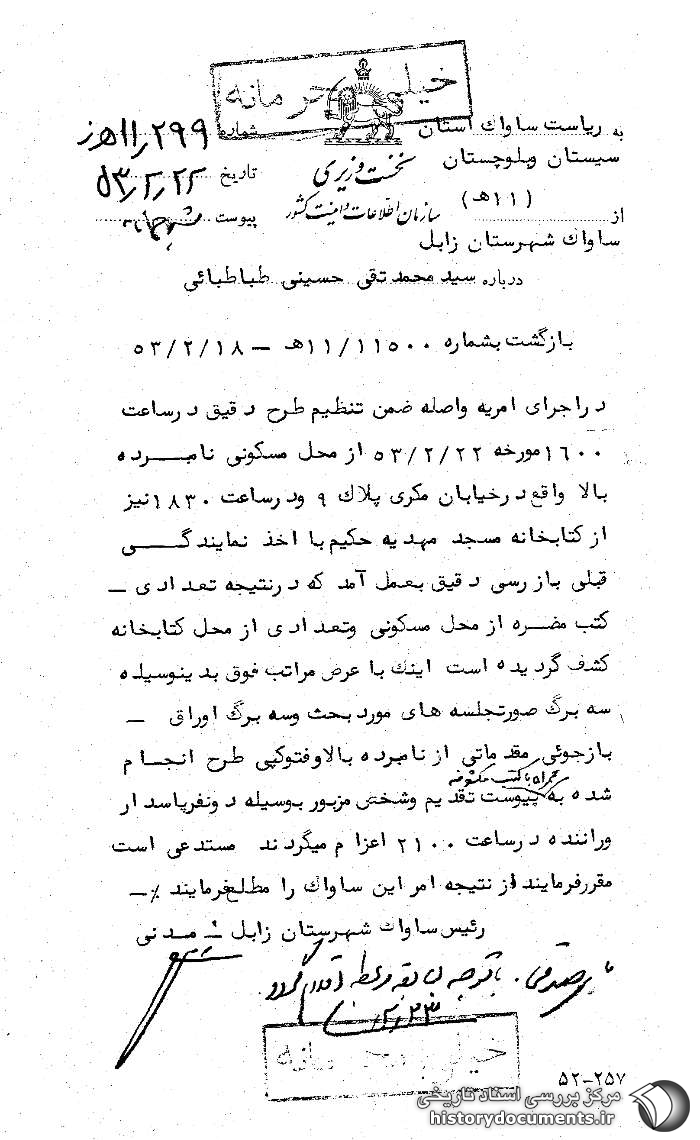 خیلی محرمانه
به ریاست ساواک استان
سیستان وبلوچستان
(۱۱هـ)
از
ساواک شهرستان زابل
نخست وزیری
سازمان اطلاعات و امنیت کشور
شماره ۱۱٫۲۹۹هـ ز
تاریخ ۵۳٫۲٫۲۲
پیوست
درباره سید محمد تقی حسینی طباطبائی
بازگشت بشماره ۱۱/۱۱۵۰۰هـ – ۵۳/۲/۱۸
دراجرای امریه واصله ضمن تنظیم طرح دقیق درساعت
۱۶۰۰ مورخه ۵۳/۲/۲۲ از محل مسکونی نامبرده
بالا واقع درخیابان مکری پلاک ۹ ودرساعت ۱۸۳۰ نیز
از کتابخانه مسجد مهدیه حکیم با اخذ نمایندگی
قبلی بازرسی دقیق بعمل آمد که درنتیجه تعدادی –
کتب مضره از محل مسکونی وتعدادی از محل کتابخانه
کشف گردیده است اینک با عرض مراتب فوق بدینوسیله
سه برگ صورتجلسه های مورد بحث وسه برگ اوراق –
بازجوئی مقدماتی از نامبرده بالا وفتوکپی طرح انجام
همراه با کتب مکشوفه
شده به پیوست تقدیم وشخص مزبور بوسیله دونفرپاسدار
وراننده درساعت ۲۱۰۰ اعزام میگردند مستدعی است
مقررفرمایند از نتیجه امر این ساواک را مطلع فرمایند ٪ –
رئیس ساواک شهرستان زابل – مدنی
با توجه سابقه اقدام گردد
خیلی محرمانه
۵۲-۲۵۷
مرکز بررسی اسناد تاریخی
historydocuments.ir